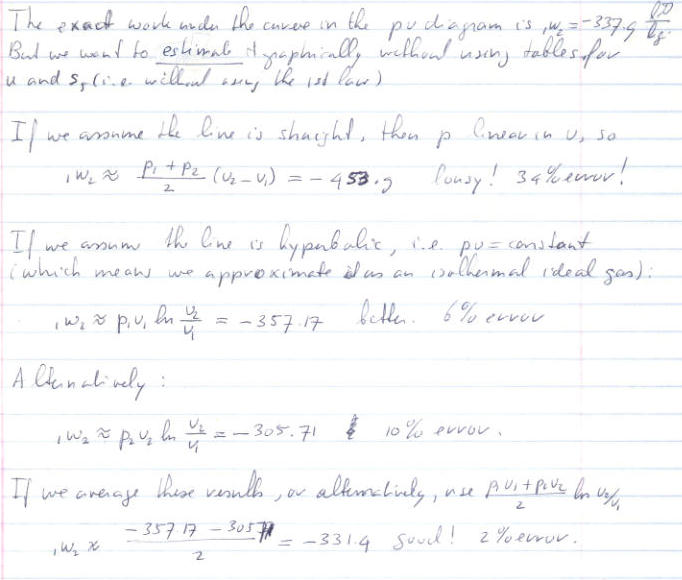 The exact work under the curve in the pv diagram is ₁w₂ = -337.9 BTU/lb.
But we want to estimate it graphically without using tables for
u and s, (i.e. without using the 1st law)
If we assume the line is straight, then p linear in v, so
₁w₂ ≈ (p₁ + p₂)/2 (v₂ - v₁) = - 453.9 lousy! 34% error!
If we assume the line is hyperbolic, i.e. pv = constant
(which means we approximate it as an isothermal ideal gas):
₁w₂ ≈ p₁v₁ ln v₂/v₁ = - 357.17 better. 6% error
Alternatively:
₁w₂ ≈ p₂v₂ ln v₂/v₁ = - 305.71 10% error.
If we average these results, or alternatively, use (p₁v₁ + p₂v₂)/2 ln v₂/v₁
₁w₂ ≈ (-357.17 - 305.71)/2 = -331.4 good! 2% error.